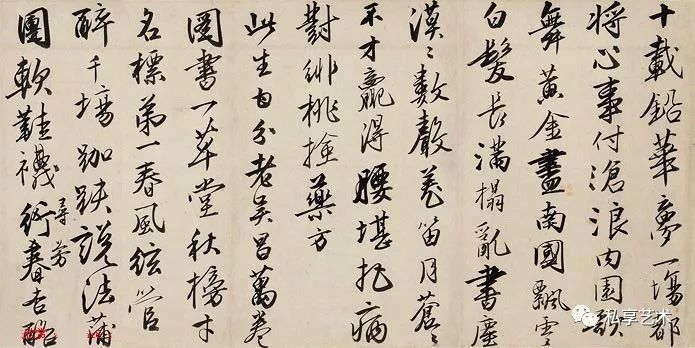 十載鉛華夢一場都
將心事付滄浪內園歌
舞黃金盡南國飄零
白髮長滿榻亂書塵
漠〻數聲羌笛月蒼〻
不才贏得腰堪把病
對緋桃撿藥方
此生自分老吳昌萬卷
圖書一草堂秋榜才
名標第一春風弦管
醉千場跏趺說法蒲
團軟鞋襪尋芳春杏酪
私享艺术